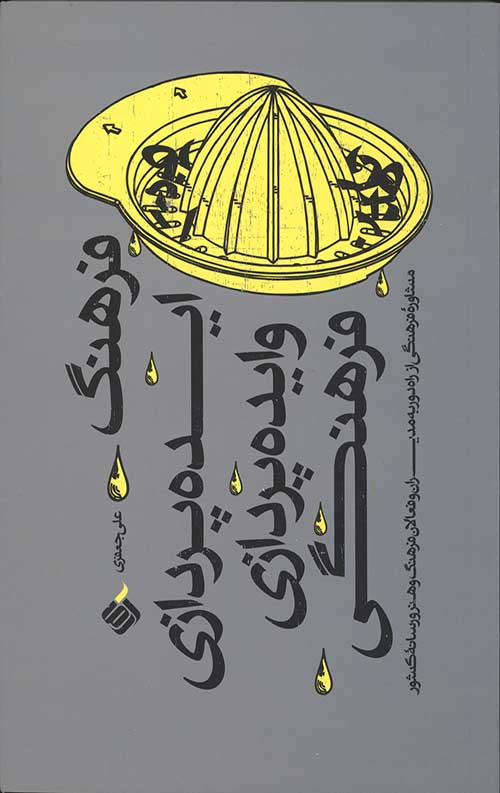 فرهنگ
ایــده‌پردازی
و ایده‌پردازی
فرهنگی
مشاورۀ فرهنگی از راه دور به مدیــران و فعالان فرهنگ و هنر و رسانۀ کشور
علی جعفری